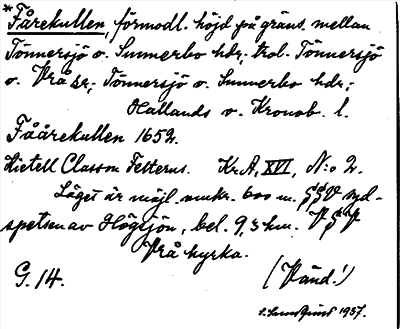 *Fårekullen, förmodl. höjd på gräns mellan
Tönnersjö o. Sunnerbo hdr; trol. Tönnersjö
o. Vrå sr; Tönnersjö o. Sunnerbo hdr;
Hallands o. Kronob. l.
Fåårekullen 1652.
Kietell Classon Felterus. Kr.A, XVI, N:o 2.
Läget är möjl. omkr. 600 m. SSV syd-
spetsen av Högsjön, bel. 9,3 km. VSV
Vrå kyrka.
G. 14.
(Vänd!)
1957.